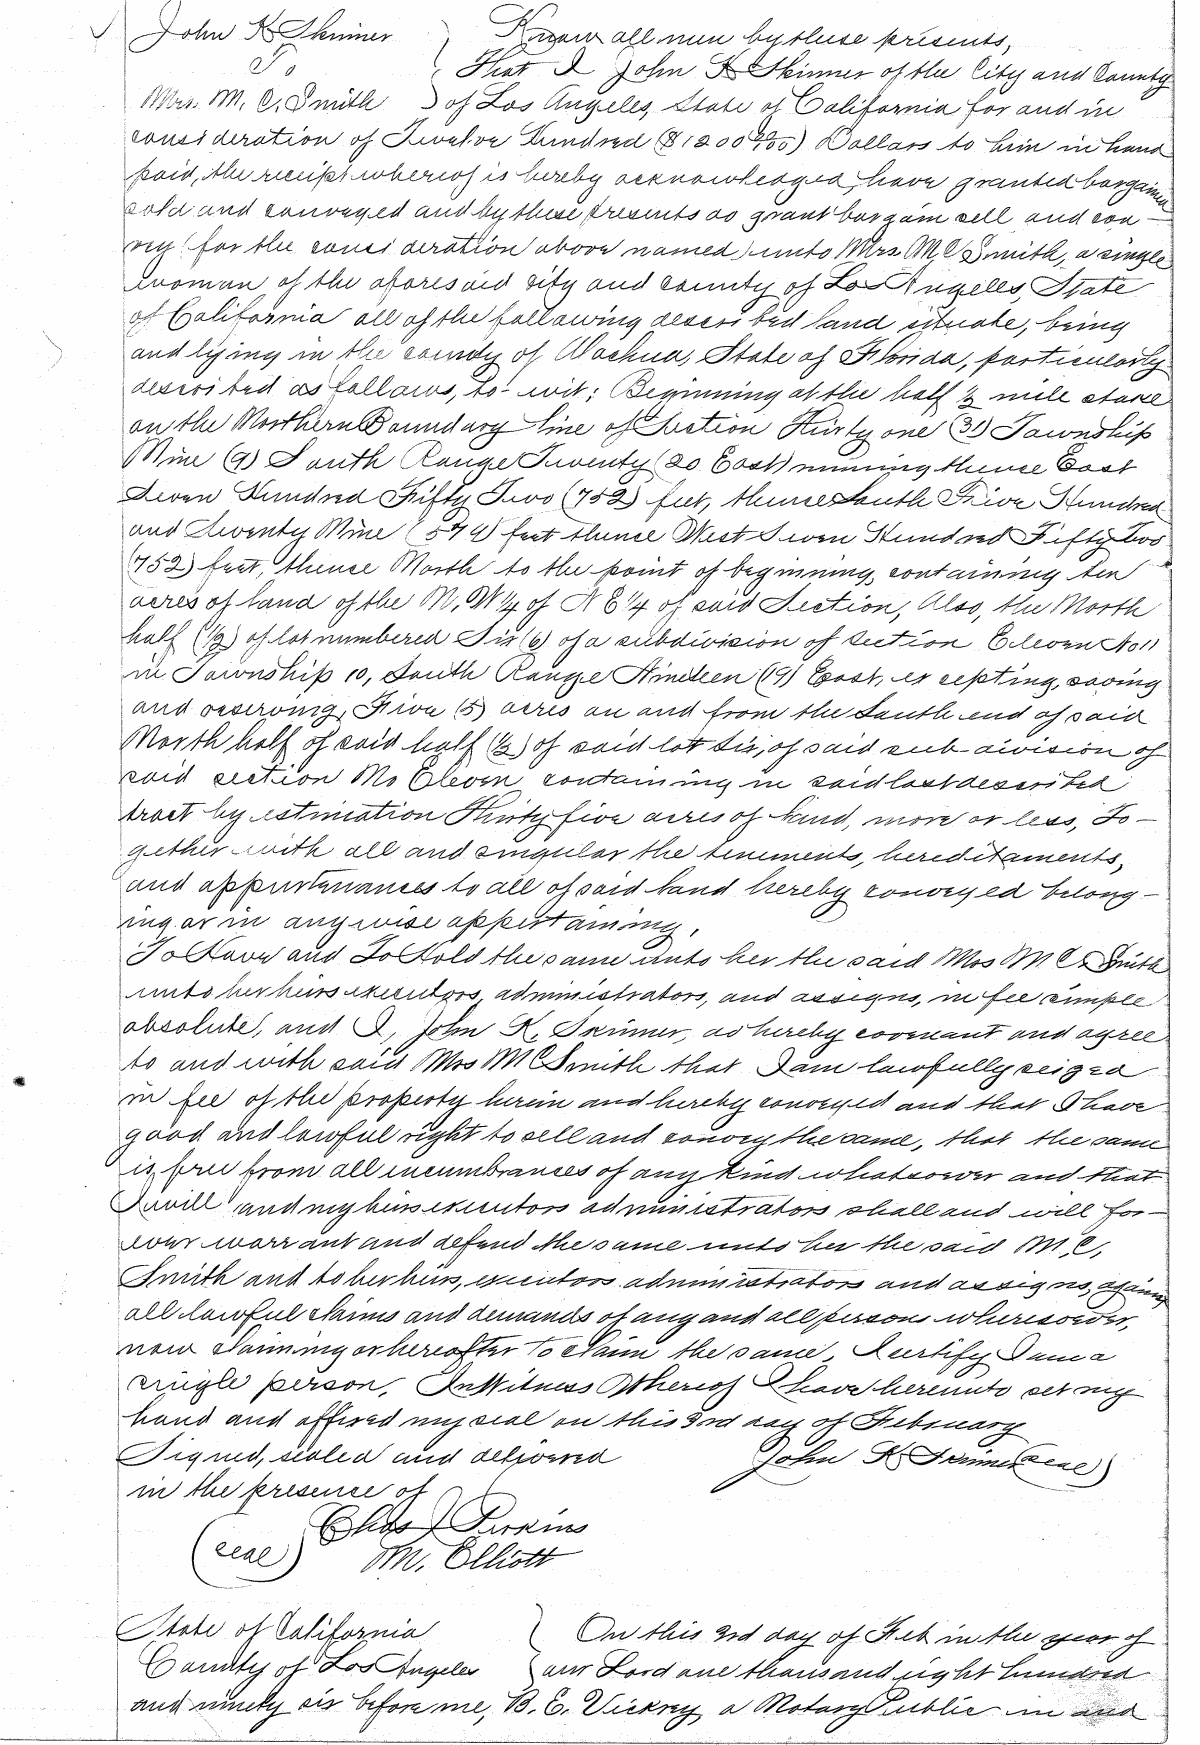 John K Skinner
To
Mrs. M. C. Smith
Know all men by these presents,
That I John K Skinner of the City and County
of Los Angeles, State of California for and in
consideration of Twelve Hundred ($1200 00/100) Dollars to him in hand
paid, the receipt whereof is hereby acknowledged, have granted bargained
sold and conveyed and by these presents do grant bargain sell and con-
vey (for the consideration above named) unto Mrs. M C Smith, a single
woman of the aforesaid city and county of Los Angeles, State
of California all of the following described land situate, being
and lying in the county of Alachua, State of Florida, particularly
described as follows, to-wit; Beginning at the half ½ mile stake
on the Northern Boundary line of Section Thirty one (31) Township
Nine (9) South Range Twenty (20 East) running thence East
Seven Hundred Fifty Two (752) feet, thence South Five Hundred
and Seventy Nine (579) feet thence West Seven Hundred Fifty two
(752) feet, thence North to the point of beginning, containing ten
acres of land of the N. W ¼ of N E ¼ of said Section, Also, the North
half (½) of lot numbered Six (6) of a subdivision of section Eleven No 11
in Township 10, South Range Nineteen (19) East, excepting, saving
and reserving, Five (5) acres on and from the South end of said
North half of said half (½) of said lot Six, of said sub-division of
said section No Eleven, containing in said last described
tract by estimation Thirty five acres of land, more or less, To-
gether with all and singular the tenements, hereditaments,
and appurtenances to all of said land hereby conveyed belong-
ing or in anywise appertaining,
To Have and To Hold the same unto her the said Mrs M C. Smith
unto her heirs executors, administrators, and assigns, in fee simple
absolute, and I, John K. Skinner, do hereby covenant and agree
to and with said Mrs M C Smith that I am lawfully seized
in fee of the property herein and hereby conveyed and that I have
good and lawful right to sell and convey the same, that the same
is free from all incumbrances of any kind whatsoever and that
I will and my heirs executors administrators shall and will for-
ever warrant and defend the same unto her the said M. C.
Smith and to her heirs, executors administrators and assigns, against
all lawful claims and demands of any and all persons wheresoever,
now claiming or hereafter to claim the same. I certify I am a
single person, In Witness Whereof I have hereunto set my
hand and affixed my seal on this 3rd day of February
Signed, sealed and delivered
John K. Skinner (seal)
in the presence of
Chas J Perkins
(seal) M. Elliott
State of California
County of Los Angeles
On this 3rd day of Feb in the year of
our Lord one thousand eight hundred
and ninety six before me, B. E. Vickrey a Notary Public in and